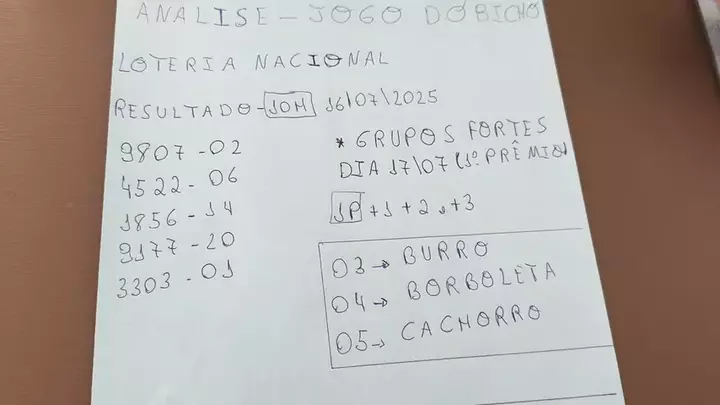 ANALISE - JOGO DO BICHO
LOTERIA NACIONAL
RESULTADO - 10H 16/07/2025
9807 - 02
4522 - 06
1856 - 14
9177 - 20
3303 - 01
* GRUPOS FORTES
DIA 17/07 (1º. PRÊMIO)
1P +1 +2, +3
03 → BURRO
04 → BORBOLETA
05 → CACHORRO